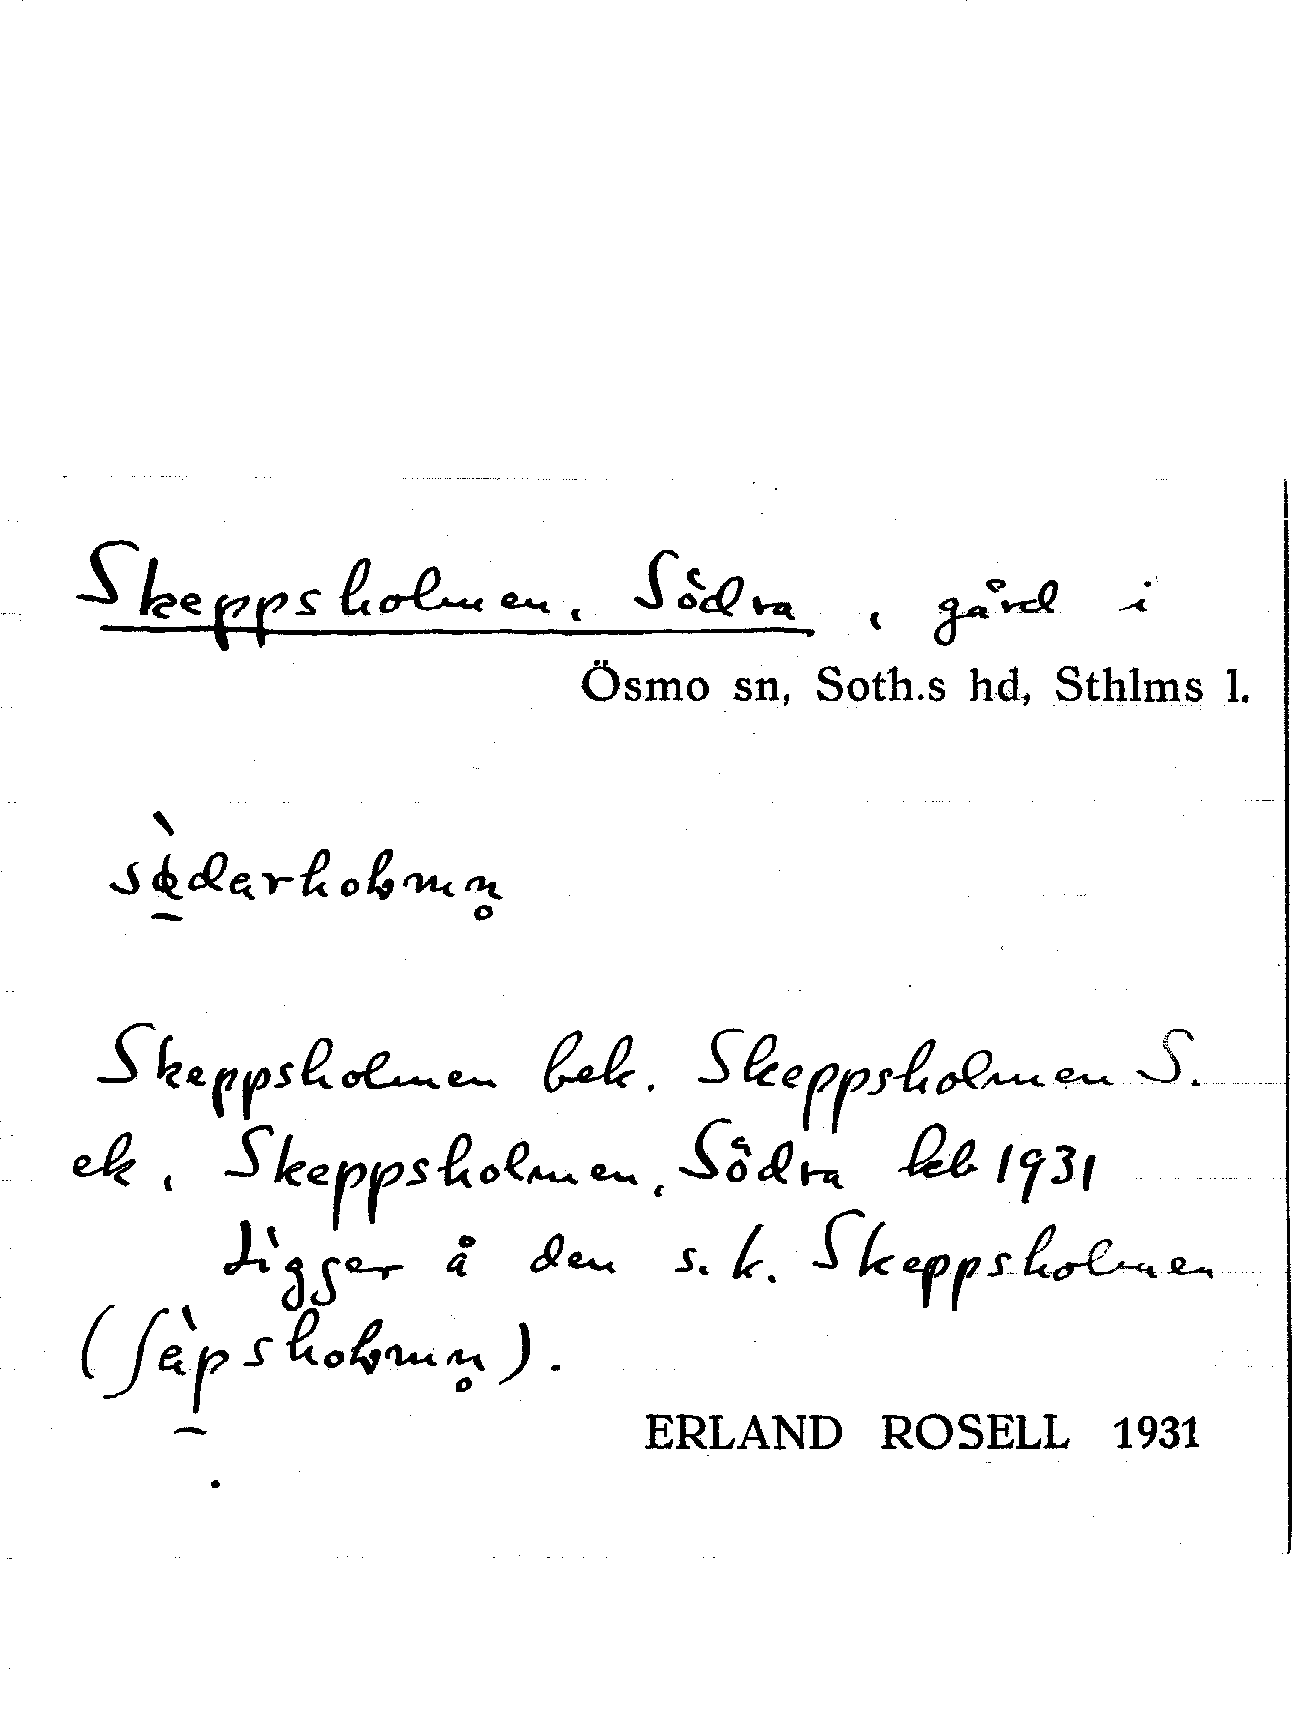 Skeppsholmen, Södra, gård i
Ösmo sn, Soth.s hd, Sthlms l.
sø̀darholmn̥
Skeppsholmen bek. Skeppsholmen S.
ek, Skeppsholmen, Södra kb 1931
Ligger å den s.k. Skeppsholmen
(ʃàpsholmn̥).
ERLAND ROSELL 1931